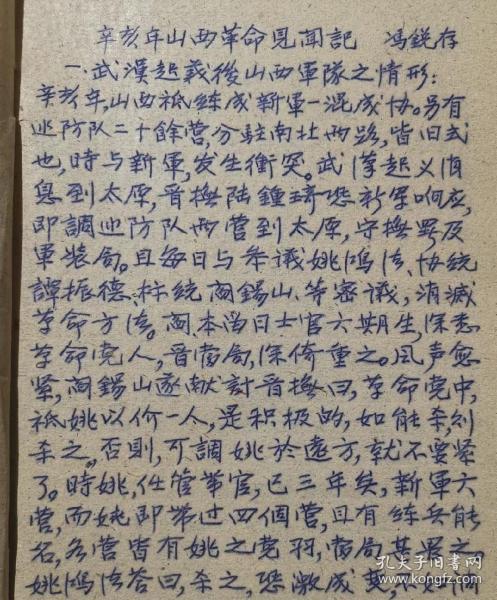 辛亥年山西革命見聞記　馮銳存
一.武漢起義後山西軍隊之情形：
辛亥年,山西祇練成新軍一混成协。另有
巡防队二十餘营,分駐南北两路,皆旧式
也,時与新軍,发生衝突。武漢起义消
息到太原,晋撫陆鍾琦恐新軍响应,
即調巡防队两营到太原,守撫署及
軍装局。且每日与参议姚鴻法、协統
譚振德、标統阎錫山、等密议,消滅
革命方法。阎,本留日士官六期生,深悉
革命党人,晋當局,深倚重之。風声愈
紧,阎錫山遂献計晋撫曰,革命党中,
祇姚以价一人,是积极的,如能杀,則
杀之。否則,可調姚於遠方,就不要紧
了。時姚,任管带官,已三年矣,新軍六
营,而姚即带过四個营,且有練兵能
名,各营皆有姚之党羽,當局甚畏之。
姚鴻法答曰,杀之,恐激成变,不如調
孔夫子旧书网
www.kongfz.com